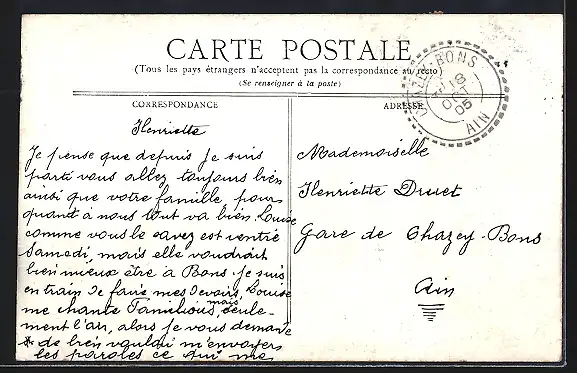 CARTE POSTALE
(Tous les pays étrangers n'acceptent pas la correspondance au recto)
(Se renseigner à la poste)
CORRESPONDANCE
Henriette
Je pense que depuis je suis
parti vous allez toujours bien
ainsi que votre famille, pour
quant à nous tout va bien. Louise
comme vous le savez est rentré
Samedi, mais elle voudrait
bien mieux être à Bons. je suis
en train de faire mes devoirs, Louise
me chante mais seule-
ment l'air, alors je vous demande
de bien vouloir m'envoyer
les paroles ce qui me
ADRESSE
Mademoiselle
Henriette Druet
Gare de Chazey-Bons
Ain
CHAZEY-BONS
18
OCT
05
AIN